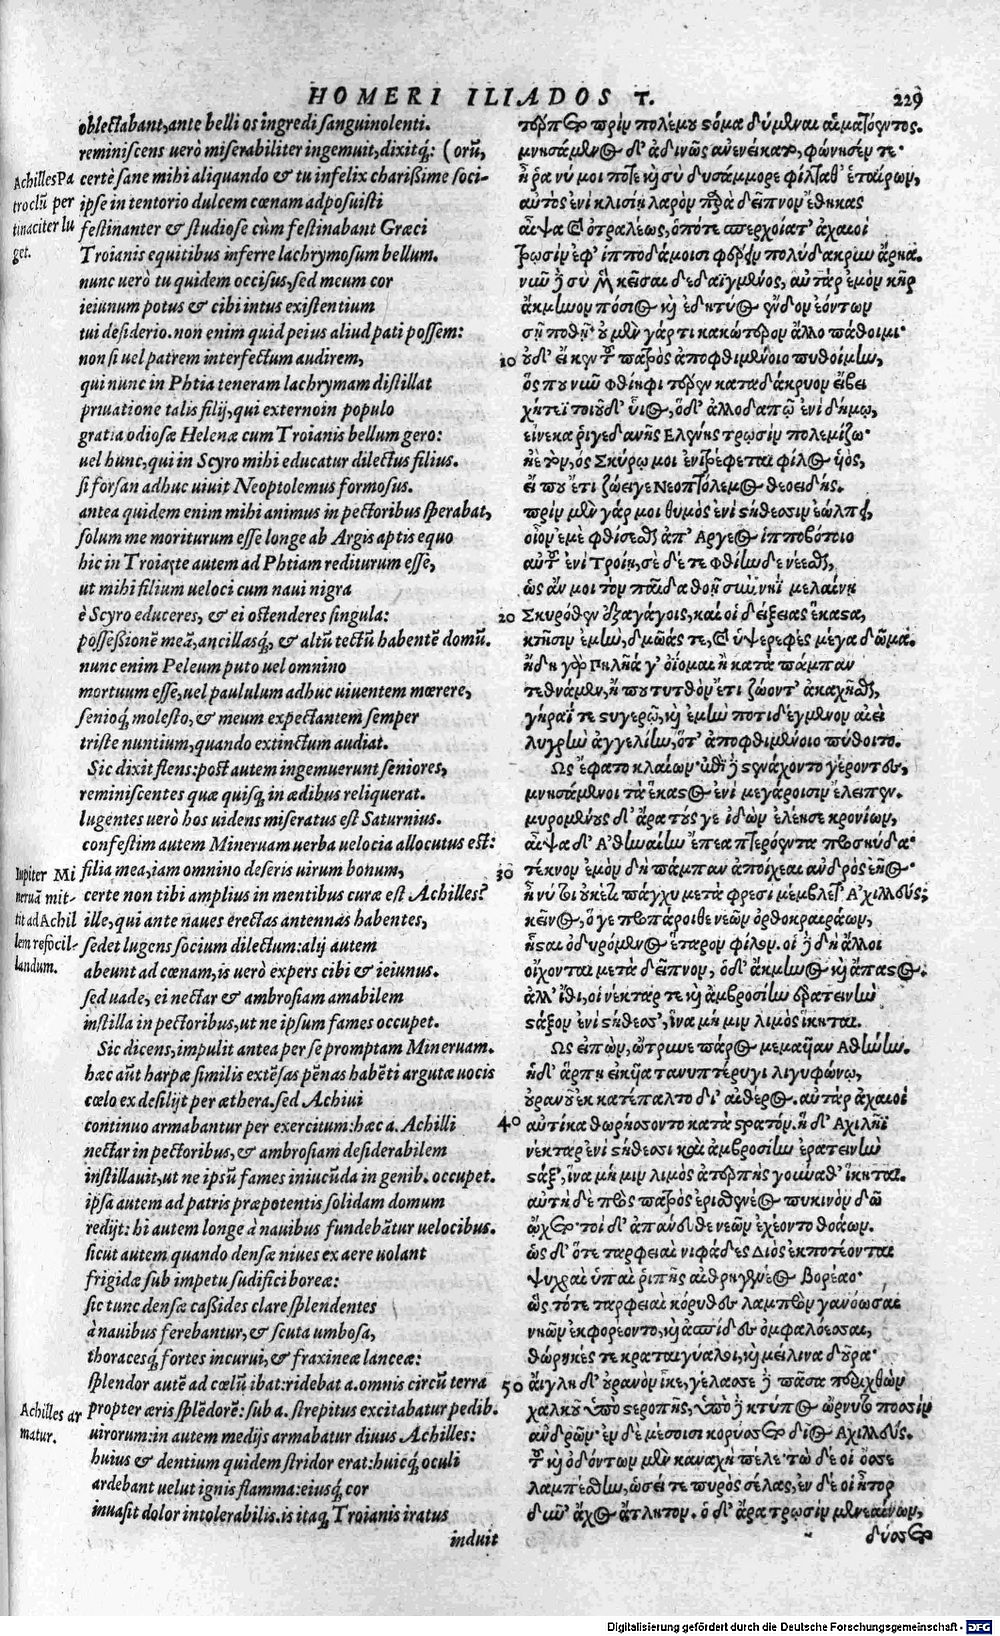 HOMERI ILIADOS T.
229
oblectabant, ante belli os ingredi sanguinolenti.
reminiscens uerò miserabiliter ingemuit, dixitq́; : (orũ,
certè sane mihi aliquando & tu infelix charißime soci-
ipse in tentorio dulcem cœnam adposuisti
festinanter & studiose cùm festinabant Græci
Troianis equitibus inferre lachrymosum bellum.
nunc uerò tu quidem occisus, sed meum cor
ieiunum potus & cibi intus existentium
tui desiderio. non enim quid peius aliud pati possem:
non si uel patrem interfectum audirem,
qui nunc in Phtia teneram lachrymam distillat
priuatione talis filij, qui externo in populo
gratia odiosæ Helenæ cum Troianis bellum gero:
uel hunc, qui in Scyro mihi educatur dilectus filius.
si forsan adhuc uiuit Neoptolemus formosus.
antea quidem enim mihi animus in pectoribus sperabat,
solum me moriturum esse longe ab Argis aptis equo
hic in Troia, te autem ad Phtiam rediturum esse,
ut mihi filium ueloci cum naui nigra
è Scyro educeres, & ei ostenderes singula:
possessionẽ meã, ancillasq́;, & altũ tectũ habentẽ domũ.
nunc enim Peleum puto uel omnino
mortuum esse, uel paululum adhuc uiuentem mœrere,
senioq́; molesto, & meum expectantem semper
triste nuntium, quando extinctum audiat.
Sic dixit flens: post autem ingemuerunt seniores,
reminiscentes quæ quisq; in ædibus reliquerat.
lugentes uerò hos uidens miseratus est Saturnius.
confestim autem Mineruam uerba uelocia allocutus est:
filia mea, iam omnino deseris uirum bonum,
certe non tibi amplius in mentibus curæ est Achilles?
ille, qui ante naues erectas antennas habentes,
sedet lugens socium dilectum: alij autem
abeunt ad cœnam, is uerò expers cibi & ieiunus.
sed uade, ei nectar & ambrosiam amabilem
instilla in pectoribus, ut ne ipsum fames occupet.
Sic dicens, impulit antea per se promptam Mineruam.
hæc aũt harpæ similis extẽsas pẽnas habẽti argutæ uocis
cœlo ex desilijt per æthera. sed Achiui
continuo armabantur per exercitum: hæc a. Achilli
nectar in pectoribus, & ambrosiam desiderabilem
instillauit, ut ne ipsũ fames iniucũda in genib. occupet.
ipsa autem ad patris præpotentis solidam domum
redijt: hi autem longe à nauibus fundebãtur uelocibus.
sicut autem quando densæ niues ex aere uolant
frigidæ sub impetu sudifici boreæ:
sic tunc densæ caßides clare splendentes
à nauibus ferebantur, & scuta umbosa,
thoracesq́; fortes incurui, & fraxineæ lanceæ:
splendor autẽ ad cœlũ ibat: ridebat a. omnis circũ terra
propter æris splẽdorẽ: sub a. strepitus excitabatur pedib.
uirorum: in autem medijs armabatur diuus Achilles:
huius & dentium quidem stridor erat: huicq́; oculi
ardebant uelut ignis flamma: eiusq́; cor
inuasit dolor intolerabilis. is itaq; Troianis iratus
induit
Achilles Pa
troclũ per
tinaciter lu
get.
Iupiter Mi
neruã mit-
tit ad Achil
lem refocil-
landum.
Achilles ar
matur.
τέρπετο πρὶν πολέμου στόμα δύμεναι αἱματόεντος.
μνησάμενος δ' ἁδινῶς ἀνενείκατο, φώνησέν τε·
ἦ ῥα νύ μοι ποτὲ καὶ σὺ δυσάμμορε φίλταθ' ἑταίρων,
αὐτὸς ἐνὶ κλισίῃ λαρὸν παρὰ δεῖπνον ἔθηκας
αἶψα καὶ ὀτραλέως, ὁπότε σπερχοίατ' ἀχαιοὶ
τρωσὶν ἐφ' ἱπποδάμοισι φέρειν πολύδακρυν ἄρηα.
νῦν δὲ σὺ μὲν κεῖσαι δεδαϊγμένος, αὐτὰρ ἐμὸν κῆρ
ἄκμηνον πόσιος καὶ ἐδητύος ἔνδον ἐόντων
σῇ ποθῇ· οὐ μὲν γάρ τι κακώτερον ἄλλο πάθοιμι·
10 οὐδ' εἴ κεν τοῦ πατρὸς ἀποφθιμένοιο πυθοίμην,
ὅς που νῦν φθίηφι τέρεν κατὰ δάκρυον εἴβει
χήτεϊ τοιοῦδ' υἷος, ὁ δ' ἀλλοδαπῷ ἐνὶ δήμῳ,
εἵνεκα ῥιγεδανῆς Ελένης τρωσὶν πολεμίζω·
ἠὲ τὸν, ὃς Σκύρῳ μοι ἐνιτρέφεται φίλος υἱός,
εἴ που ἔτι ζώει γε Νεοπτόλεμος θεοειδής.
πρὶν μὲν γάρ μοι θυμὸς ἐνὶ στήθεσσιν ἐώλπει,
οἶον ἐμὲ φθίσεσθαι ἀπ' Αργεος ἱπποβότοιο
αὐτοῦ ἐνὶ Τροίῃ, σὲ δέ τε φθίηνδε νέεσθαι,
ὡς ἄν μοι τὸν παῖδα θοῇ σὺν νηῒ μελαίνῃ
20 Σκυρόθεν ἐξαγάγοις, καί οἱ δείξειας ἕκαστα,
κτῆσιν ἐμὴν, δμῶάς τε, καὶ ὑψερεφὲς μέγα δῶμα.
ἤδη γὰρ Πηλῆά γ' ὀΐομαι ἢ κατὰ πάμπαν
τεθνάμεν, ἤ που τυτθὸν ἔτι ζώοντ' ἀκαχῆσθαι,
γήραΐ τε στυγερῷ, καὶ ἐμὴν ποτιδέγμενον αἰεὶ
λυγρὴν ἀγγελίην, ὅτ' ἀποφθιμένοιο πύθοιτο.
Ως ἔφατο κλαίων· ἐπὶ δὲ στενάχοντο γέροντες,
μνησάμενοι τὰ ἕκαστος ἐνὶ μεγάροισιν ἔλειπεν.
μυρομένους δ' ἄρα τούς γε ἰδὼν ἐλέησε κρονίων,
αἶψα δ' Αθηναίην ἔπεα πτερόεντα προσηύδα·
30 τέκνον ἐμὸν δὴ πάμπαν ἀποίχεαι ἀνδρὸς ἑῆος·
ἦ νύ τοι οὐκέτι πάγχυ μετὰ φρεσὶ μέμβλετ' Αχιλλεύς;
κεῖνος, ὅ γε προπάροιθε νεῶν ὀρθοκραιράων,
ἧσται ὀδυρόμενος ἕταρον φίλον. οἱ δὲ δὴ ἄλλοι
οἴχονται μετὰ δεῖπνον, ὁ δ' ἄκμηνος καὶ ἄπαστος.
ἀλλ' ἴθι, οἱ νέκταρ τε καὶ ἀμβροσίην ἐρατεινὴν
στάξον ἐνὶ στήθεσσ', ἵνα μή μιν λιμὸς ἵκηται.
Ως εἰπὼν, ὤτρυνε πάρος μεμαυῖαν Αθήνην.
ἡ δ' ἅρπῃ εἰκυῖα τανυπτέρυγι λιγυφώνῳ,
οὐρανοῦ ἐκ κατέπαλτο δι' αἰθέρος. αὐτὰρ ἀχαιοὶ
40 αὐτίκα θωρήσσοντο κατὰ στρατόν. ἡ δ' Αχιλῆϊ
νέκταρ ἐνὶ στήθεσσι καὶ ἀμβροσίην ἐρατεινὴν
στάξ', ἵνα μή μιν λιμὸς ἀτερπὴς γούναθ' ἵκηται.
αὐτὴ δὲ πρὸς πατρὸς ἐρισθενέος πυκινὸν δῶ
ᾤχετο· τοὶ δ' ἀπάνευθε νεῶν ἐχέοντο θοάων.
ὡς δ' ὅτε ταρφειαὶ νιφάδες Διὸς ἐκποτέονται
ψυχραὶ ὑπαὶ ῥιπῆς αἰθρηγενέος βορέαο·
ὣς τότε ταρφειαὶ κόρυθες λαμπρὸν γανόωσαι
νηῶν ἐκφορέοντο, καὶ ἀσπίδες ὀμφαλόεσσαι,
θώρηκές τε κραταιγύαλοι, καὶ μείλινα δοῦρα·
50 αἴγλη δ' οὐρανὸν ἷκε, γέλασσε δὲ πᾶσα περὶ χθὼν
χαλκοῦ ὑπὸ στεροπῆς, ὑπὸ δὲ κτύπος ὤρνυτο ποσσὶν
ἀνδρῶν· ἐν δὲ μέσοισι κορύσσετο δῖος Αχιλλεύς.
τοῦ καὶ ὀδόντων μὲν καναχὴ πέλε· τὼ δέ οἱ ὄσσε
λαμπέσθην, ὡσεί τε πυρὸς σέλας, ἐν δέ οἱ ἦτορ
δῦν' ἄχος ἄτλητον. ὁ δ' ἄρα τρωσὶν μενεαίνων,
δύσετο
Digitalisierung gefördert durch die Deutsche Forschungsgemeinschaft - DFG